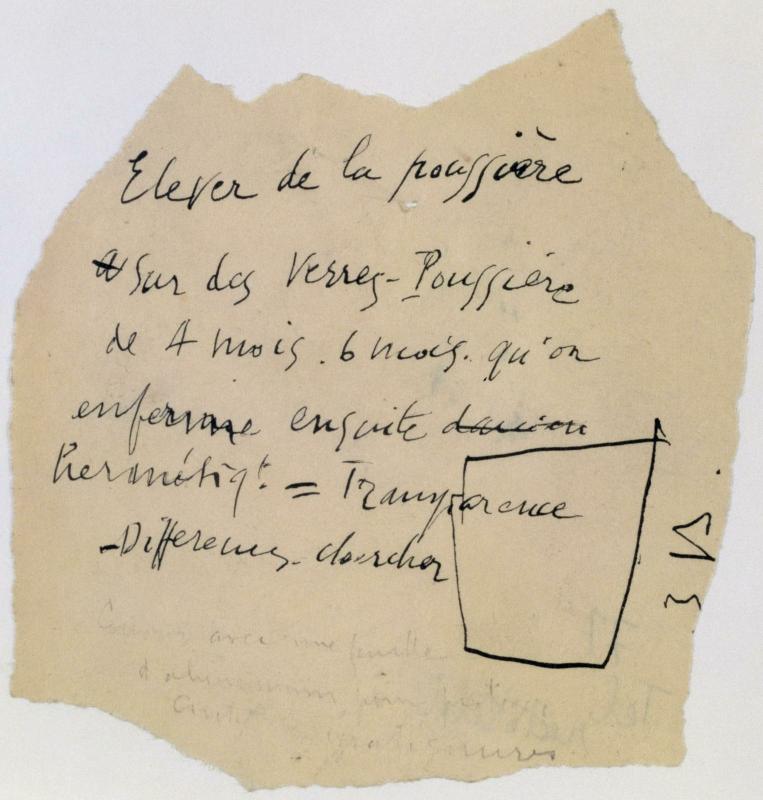 Elever de la poussière
Sur des Verres-Poussière
de 4 mois. 6 mois. qu'on
enferme ensuite
hermétiqt. = Transparence
-Differences. chercher
avec une feuille
d'aluminium pour
égratignures